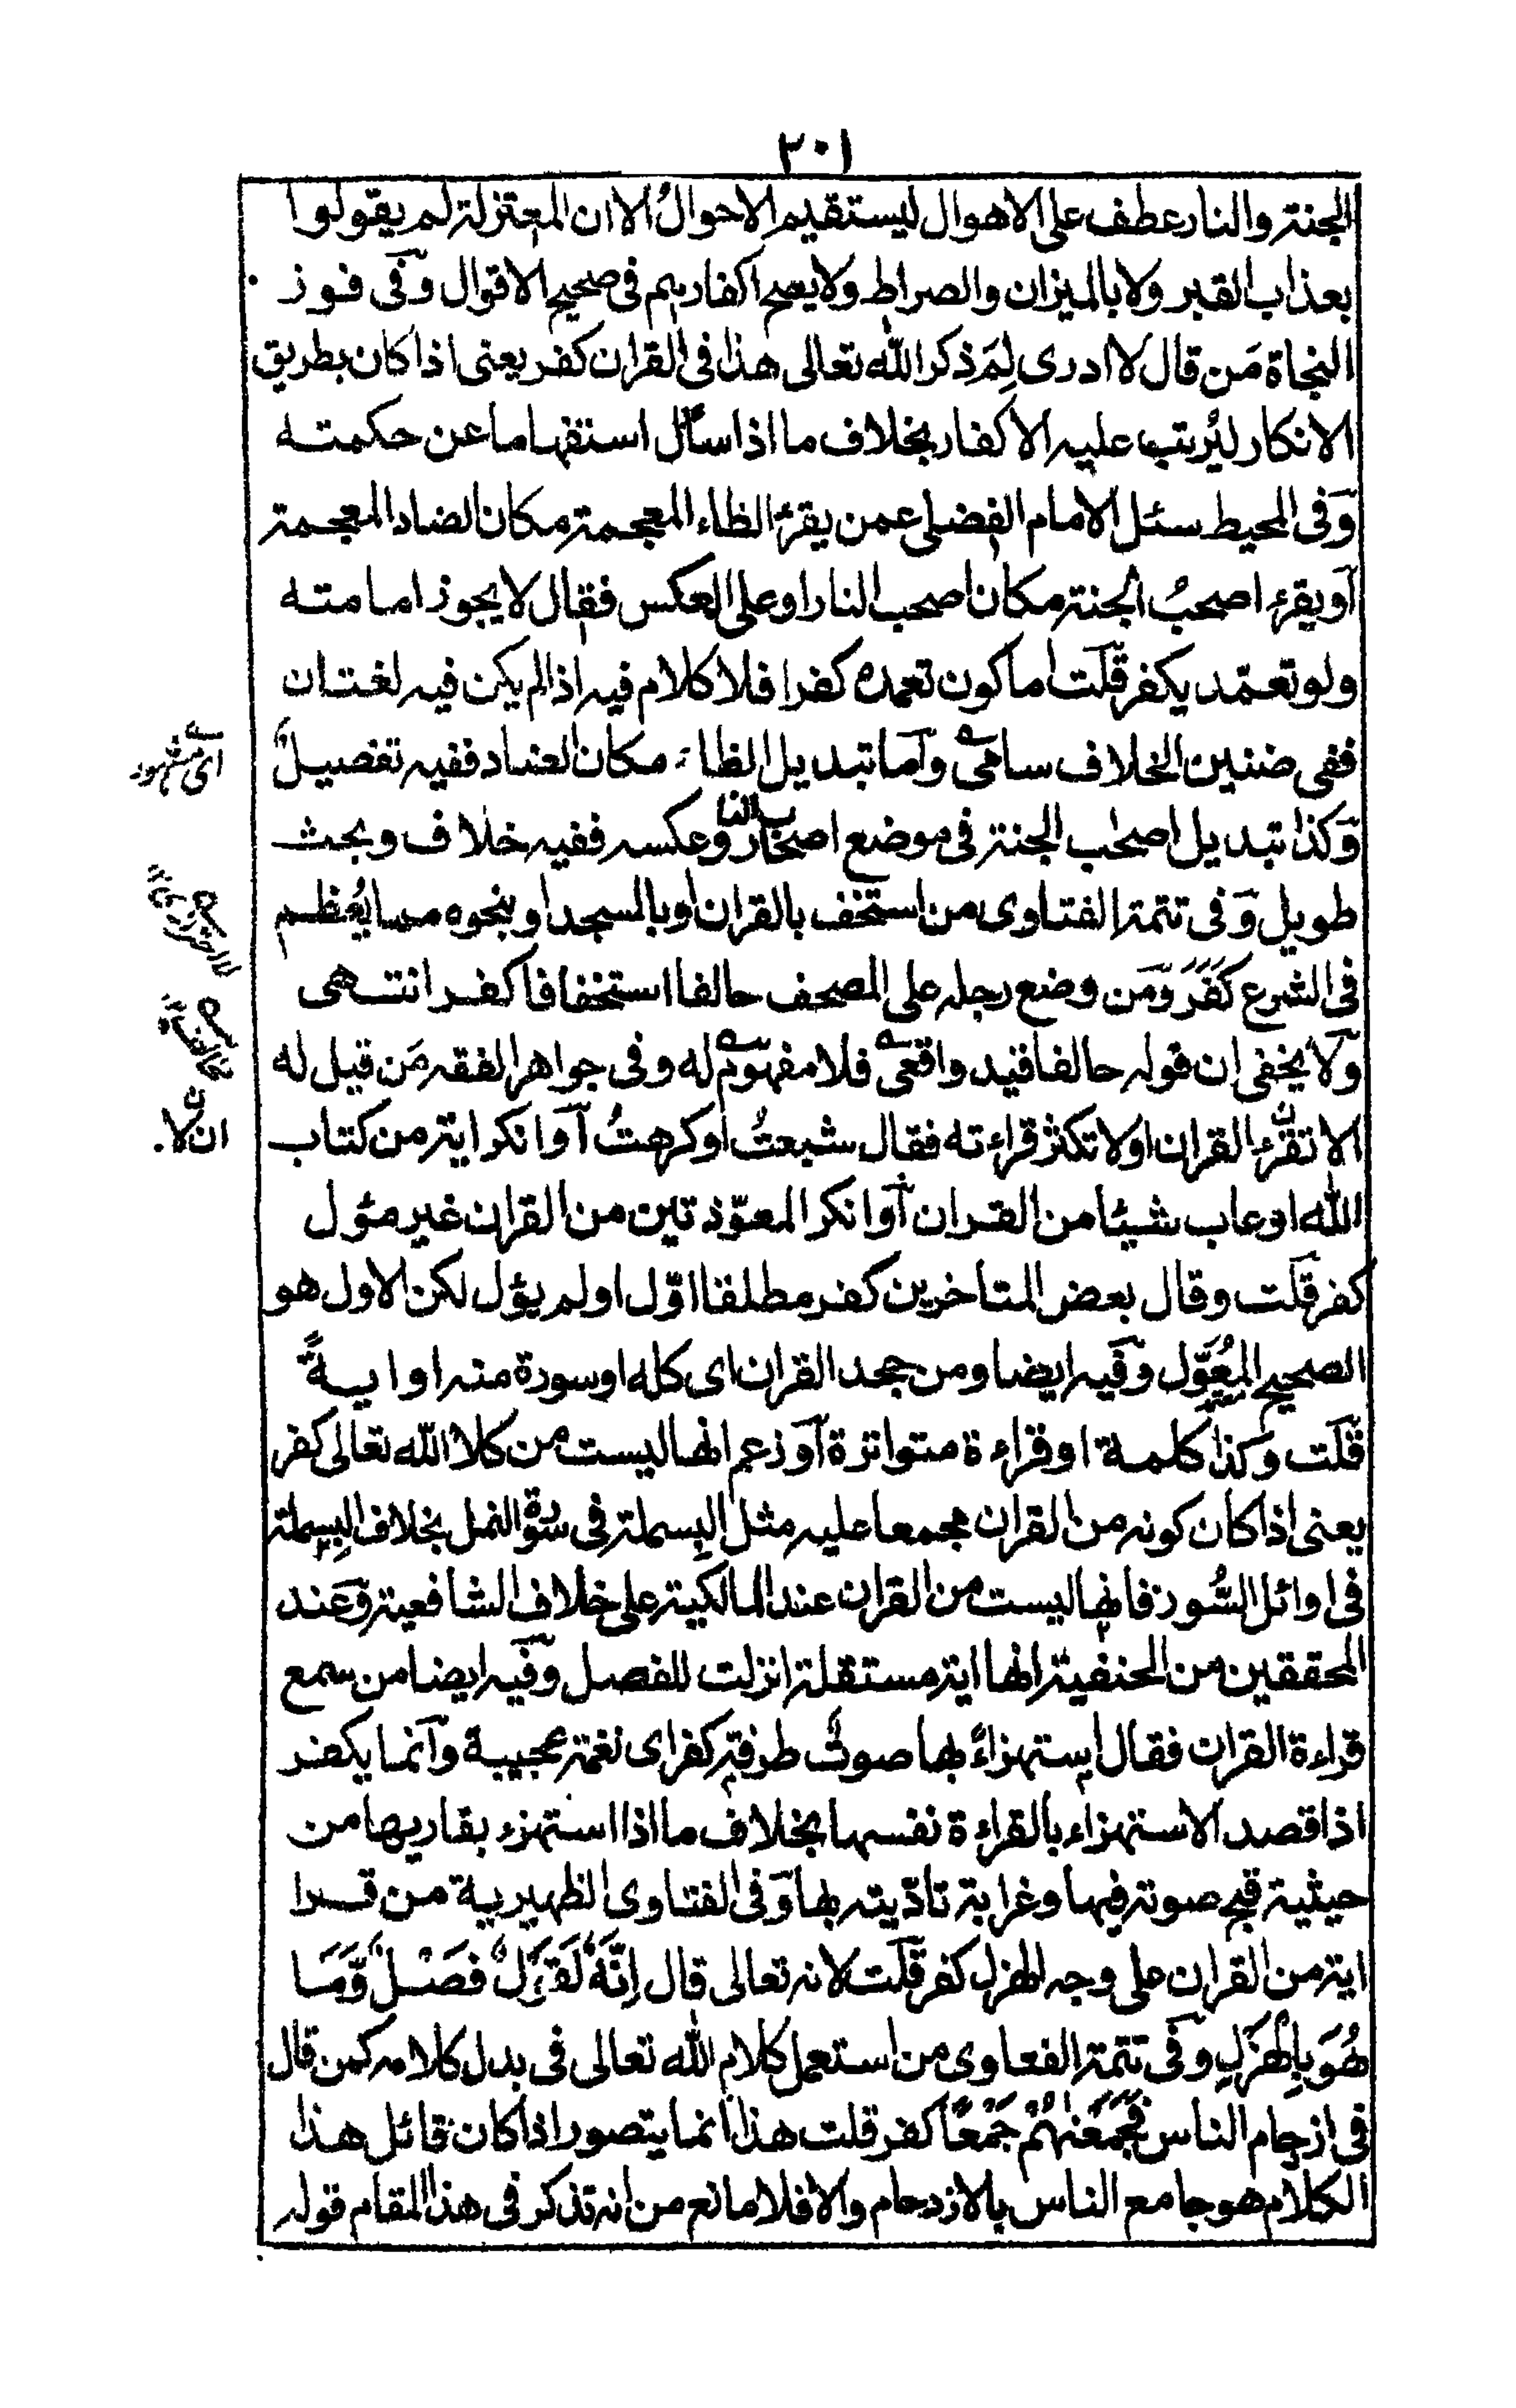 ٢٠١
الجنة والنار عطف على الاهوال ليستقيم الاحوالُ الا ان المعتزلة لم يقولوا
بعذاب القبر ولا بالميزان والصراط ولا يصح اكفارهم فى صحيح الاقوال وفى فوز
النجاة مَن قال لا ادرى لِمَ ذكر الله تعالى هذا فى القران كفر يعنى اذا كان بطريق
الانكار ليُرتب عليه الاكفار بخلاف ما اذا سأل استفهاما عن حكمته
وفى المحيط سئل الامام الفضلى عمن يقرء الظاء المعجمة مكان الضاد المعجمة
او يقرء اصحبُ الجنة مكان اصحب النار او على العكس فقال لا يجوز امامته
ولو تعمّد يكفر قلت اما كون تعمده كفرا فلا كلام فيه اذا لم يكن فيه لغتان
ففى ضنين الخلاف سامى واما تبديل الظاء مكان الضاد ففيه تفصيلٌ
اى مشهور
وكذا تبديل اصحٰب الجنة فى موضع اصحاب النار وعكسه ففيه خلاف وبحث
طويل وفى تتمة الفتاوى من استخف بالقران او بالمسجد او بنحوه مما يُعظم
فى الشرع كَفَرَ ومَن وضع رجله على المصحف حالفا استخفافا كفر انتهى
ولا يخفى ان قوله حالفا قيد واقعى فلا مفهوم له وفى جواهر الفقه مَن قيل له
الا تقرء القران او لا تكثر قراءته فقال شبعتُ او كرهتُ او انكر اية من كتاب
ان لا.
الله او عاب شيئا من القران او انكر المعوّذتين من القران غير مؤل
كفر قلت وقال بعض المتاخرين كفر مطلقا اوّل او لم يؤل لكن الاول هو
الصحيح المعَوَّل وفيه ايضا ومن جحد القران اى كله او سورة منه او ايةً
قلت وكذا كلمة او قراءة متواترة او زعم انها ليست من كلام الله تعالى كفر
يعنى اذا كان كونه من القران مجمعا عليه مثل البسملة فى سورة النمل بخلاف البسملة
فى اوائل السُّور فانها ليست من القران عند المالكية على خلاف الشافعية وعند
المحققين من الحنفية انها اية مستقلة انزلت للفصل وفيه ايضا من سمع
قراءة القران فقال استهزاءً بها صوتٌ طرفة كفر اى نغمة عجيبة وانما يكفر
اذا قصد الاستهزاء بالقراءة نفسها بخلاف ما اذا استهزء بقاريها من
حيثية قبح صوته فيها وغرابة تاديته بها وفى الفتاوى الظهيرية من قرا
اية من القران على وجه الهزل كفر قلت لانه تعالى قال اِنَّهٗ لَقَوْلٌ فَصْلٌ وَّمَا
هُوَ بِالْهَزْلِ وفى تتمة الفعاوى من استعمل كلام الله تعالى فى بدل كلامه كمن قال
فى ازدحام الناس فَجَمَعْنٰهُمْ جَمْعًا كفر قلت هذا انما يتصور اذا كان قائل هذا
الكلام هو جامع الناس بالازدحام والا فلا مانع من انه تذكر فى هذا المقام قوله